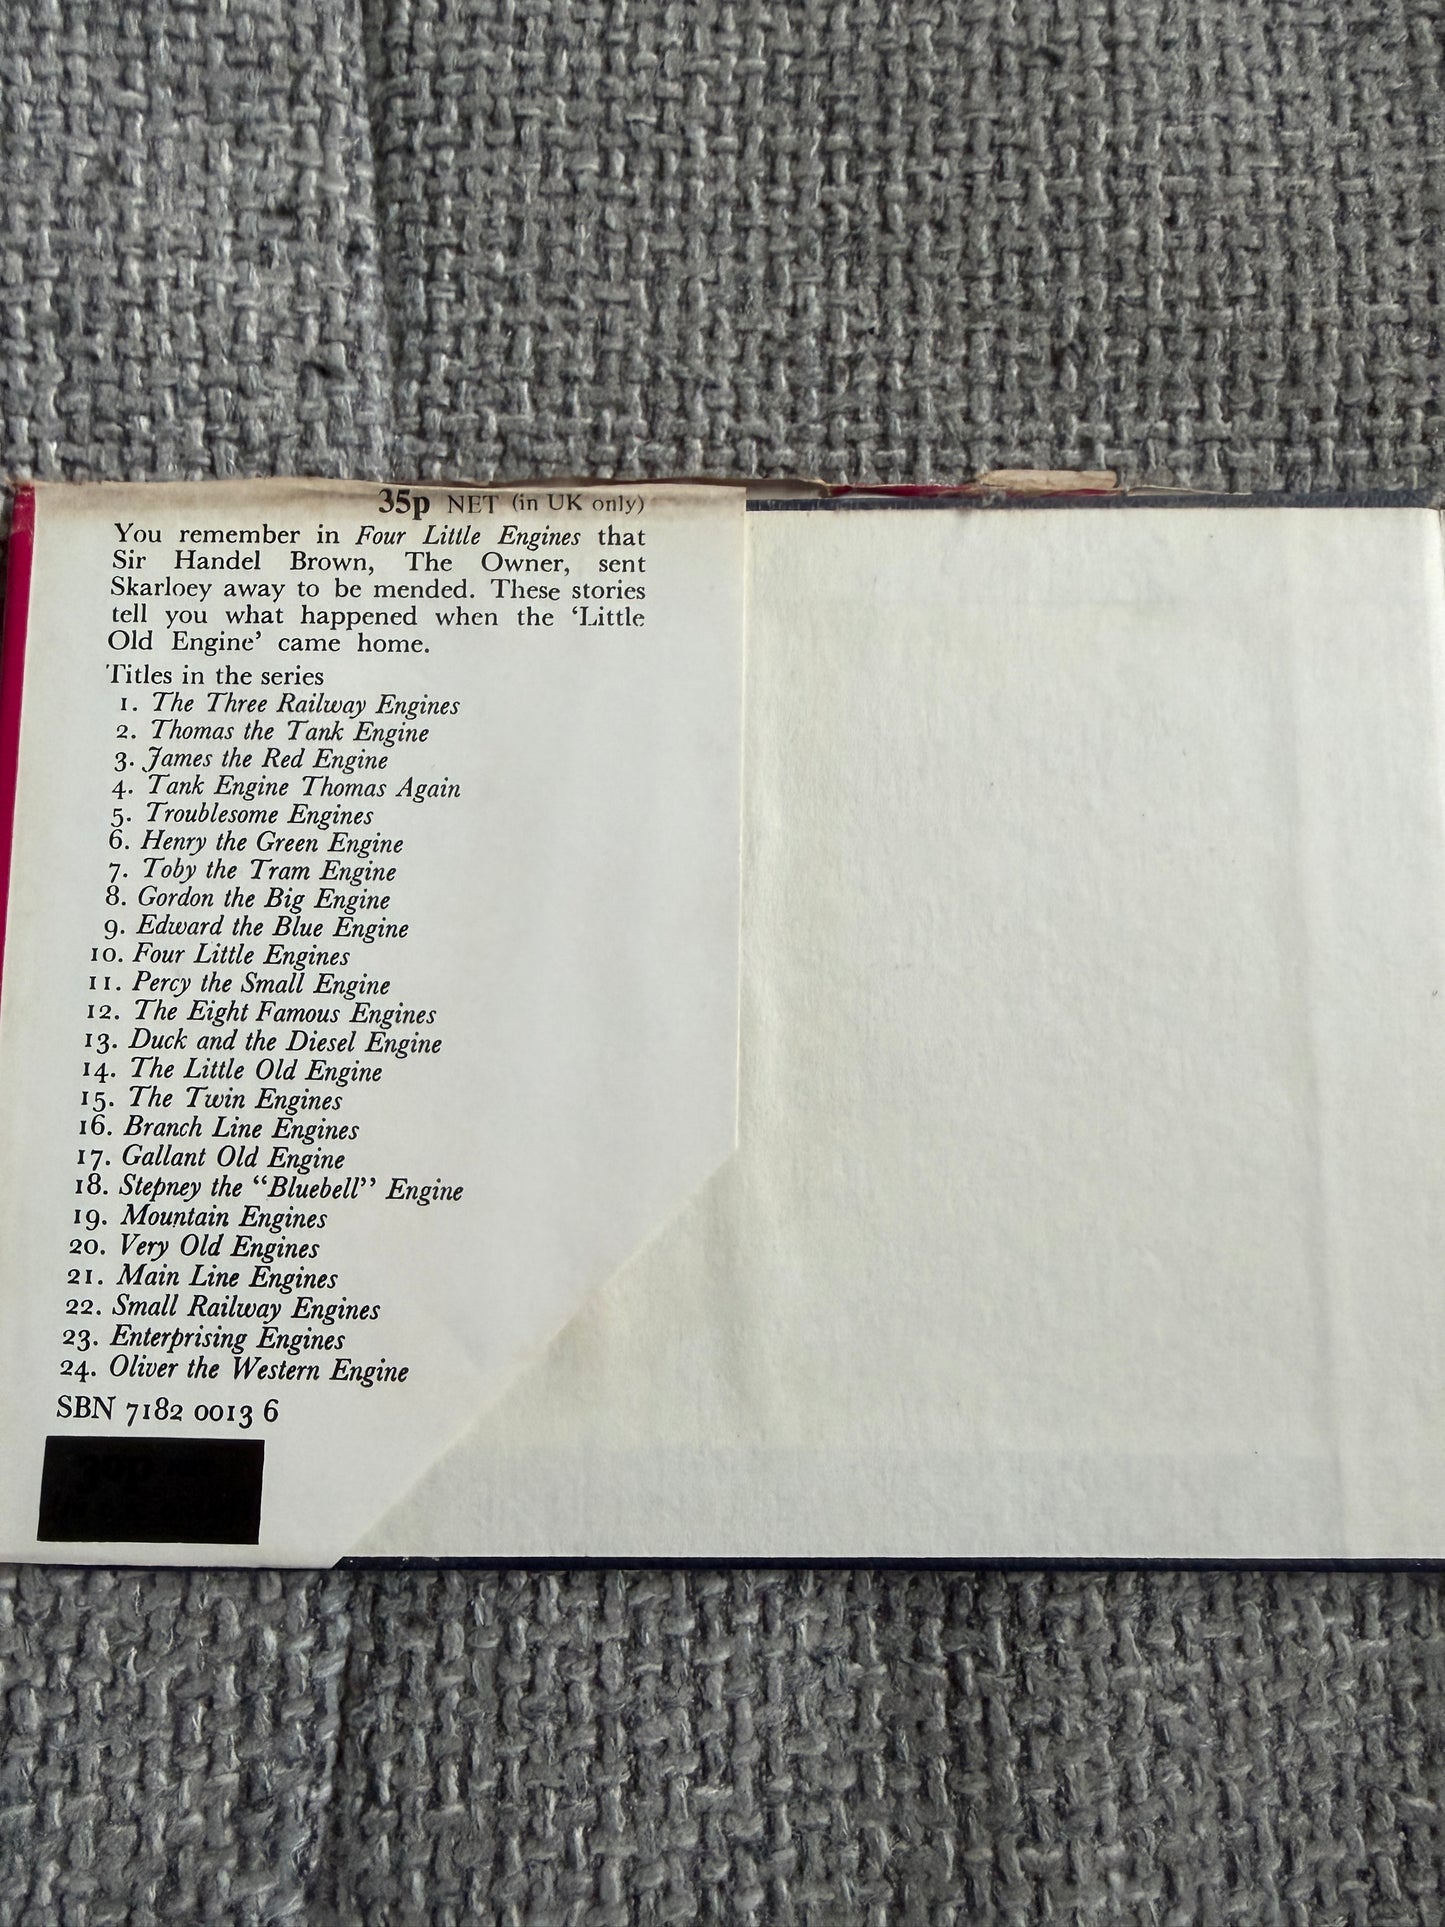 35p NET (in UK only)
You remember in Four Little Engines that
Sir Handel Brown, The Owner, sent
Skarloey away to be mended. These stories
tell you what happened when the ‘Little
Old Engine’ came home.
Titles in the series
1. The Three Railway Engines
2. Thomas the Tank Engine
3. James the Red Engine
4. Tank Engine Thomas Again
5. Troublesome Engines
6. Henry the Green Engine
7. Toby the Tram Engine
8. Gordon the Big Engine
9. Edward the Blue Engine
10. Four Little Engines
11. Percy the Small Engine
12. The Eight Famous Engines
13. Duck and the Diesel Engine
14. The Little Old Engine
15. The Twin Engines
16. Branch Line Engines
17. Gallant Old Engine
18. Stepney the “Bluebell” Engine
19. Mountain Engines
20. Very Old Engines
21. Main Line Engines
22. Small Railway Engines
23. Enterprising Engines
24. Oliver the Western Engine
SBN 7182 0013 6